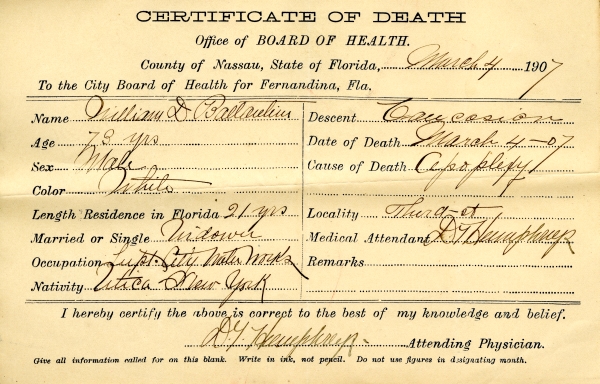 CERTIFICATE OF DEATH
Office of BOARD OF HEALTH.
County of Nassau, State of Florida, March 4 1907
To the City Board of Health for Fernandina, Fla.
Name William D Ballantine
Age 73 yrs
Sex Male
Color White
Length Residence in Florida 21 yrs
Married or Single Widower
Occupation Supt. City Water Works
Nativity Utica New York
Descent Caucasion
Date of Death March 4-07
Cause of Death Apoplexy
Locality Third st
Medical Attendant D T Humphreys
Remarks
I hereby certify the above is correct to the best of my knowledge and belief.
D. T Humphreys Attending Physician.
Give all information called for on this blank. Write in ink, not pencil. Do not use figures in designating month.